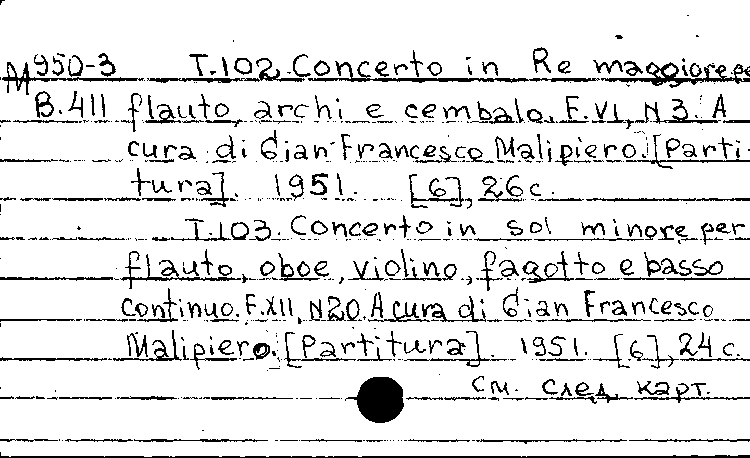 М950-3 T.102. Concerto in Re maggiore pe
В.411 flauto, archi e cembalo. F.VI, N 3. A
cura di Gian Francesco Malipiero. [Parti-
tura]. 1951. [6], 26 с.
T.103. Concerto in sol minore per
flauto, oboe, violino, fagotto e basso
continuo. F.XII, N20. A cura di Gian Francesco
Malipiero. [Partitura]. 1951. [6], 24 с.
см. след. карт.